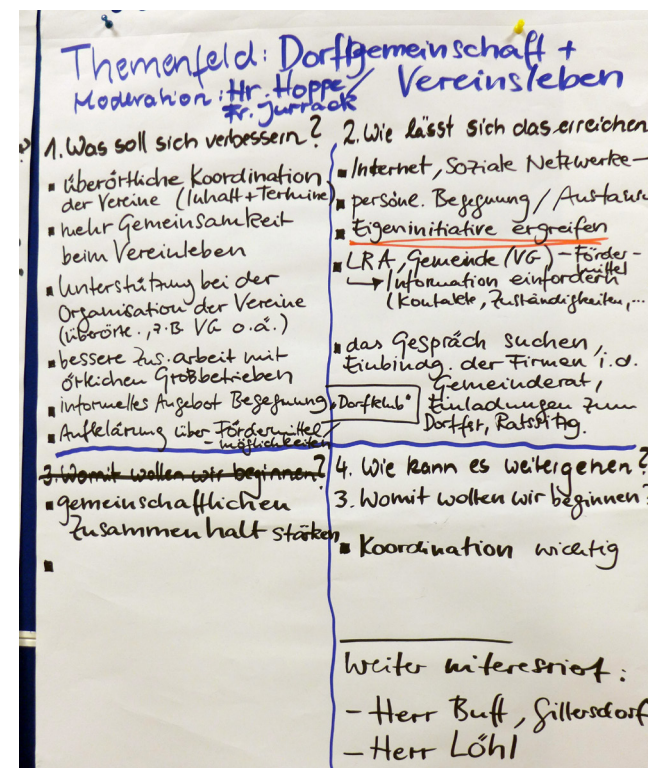 Themenfeld: Dorfgemeinschaft +
Vereinsleben
Moderation: Hr. Hoppe
Fr. Jurrack
1. Was soll sich verbessern?
▪ überörtliche Koordination
der Vereine (Inhalt + Termine)
▪ mehr Gemeinsamkeit
beim Vereinleben
▪ Unterstützung bei der
Organisation der Vereine
(überörtl., z.B. VG o.ä.)
▪ bessere Zus.arbeit mit
örtlichen Großbetrieben
▪ informelles Angebot Begegnung „Dorfklub"
▪ Aufklärung über Fördermittel-
möglichkeiten
3. Womit wollen wir beginnen?
▪ gemeinschaftlichen
Zusammenhalt stärken
2. Wie lässt sich das erreichen
▪ Internet, Soziale Netzwerke –
▪ persönl. Begegnung / Austausch
▪ Eigeninitiative ergreifen
▪ LRA, Gemeinde (VG) – Förder-
mittel
→ Information einfordern
(Kontakte, Zuständigkeiten, ...
▪ das Gespräch suchen,
Einbindg. der Firmen i.d.
Gemeinderat,
Einladungen zum
Dorffst, Ratssitzg.
4. Wie kann es weitergehen?
3. Womit wollen wir beginnen?
▪ Koordination wichtig
Weiter interessiert:
– Herr Buff, Gillersdorf
– Herr Löhl